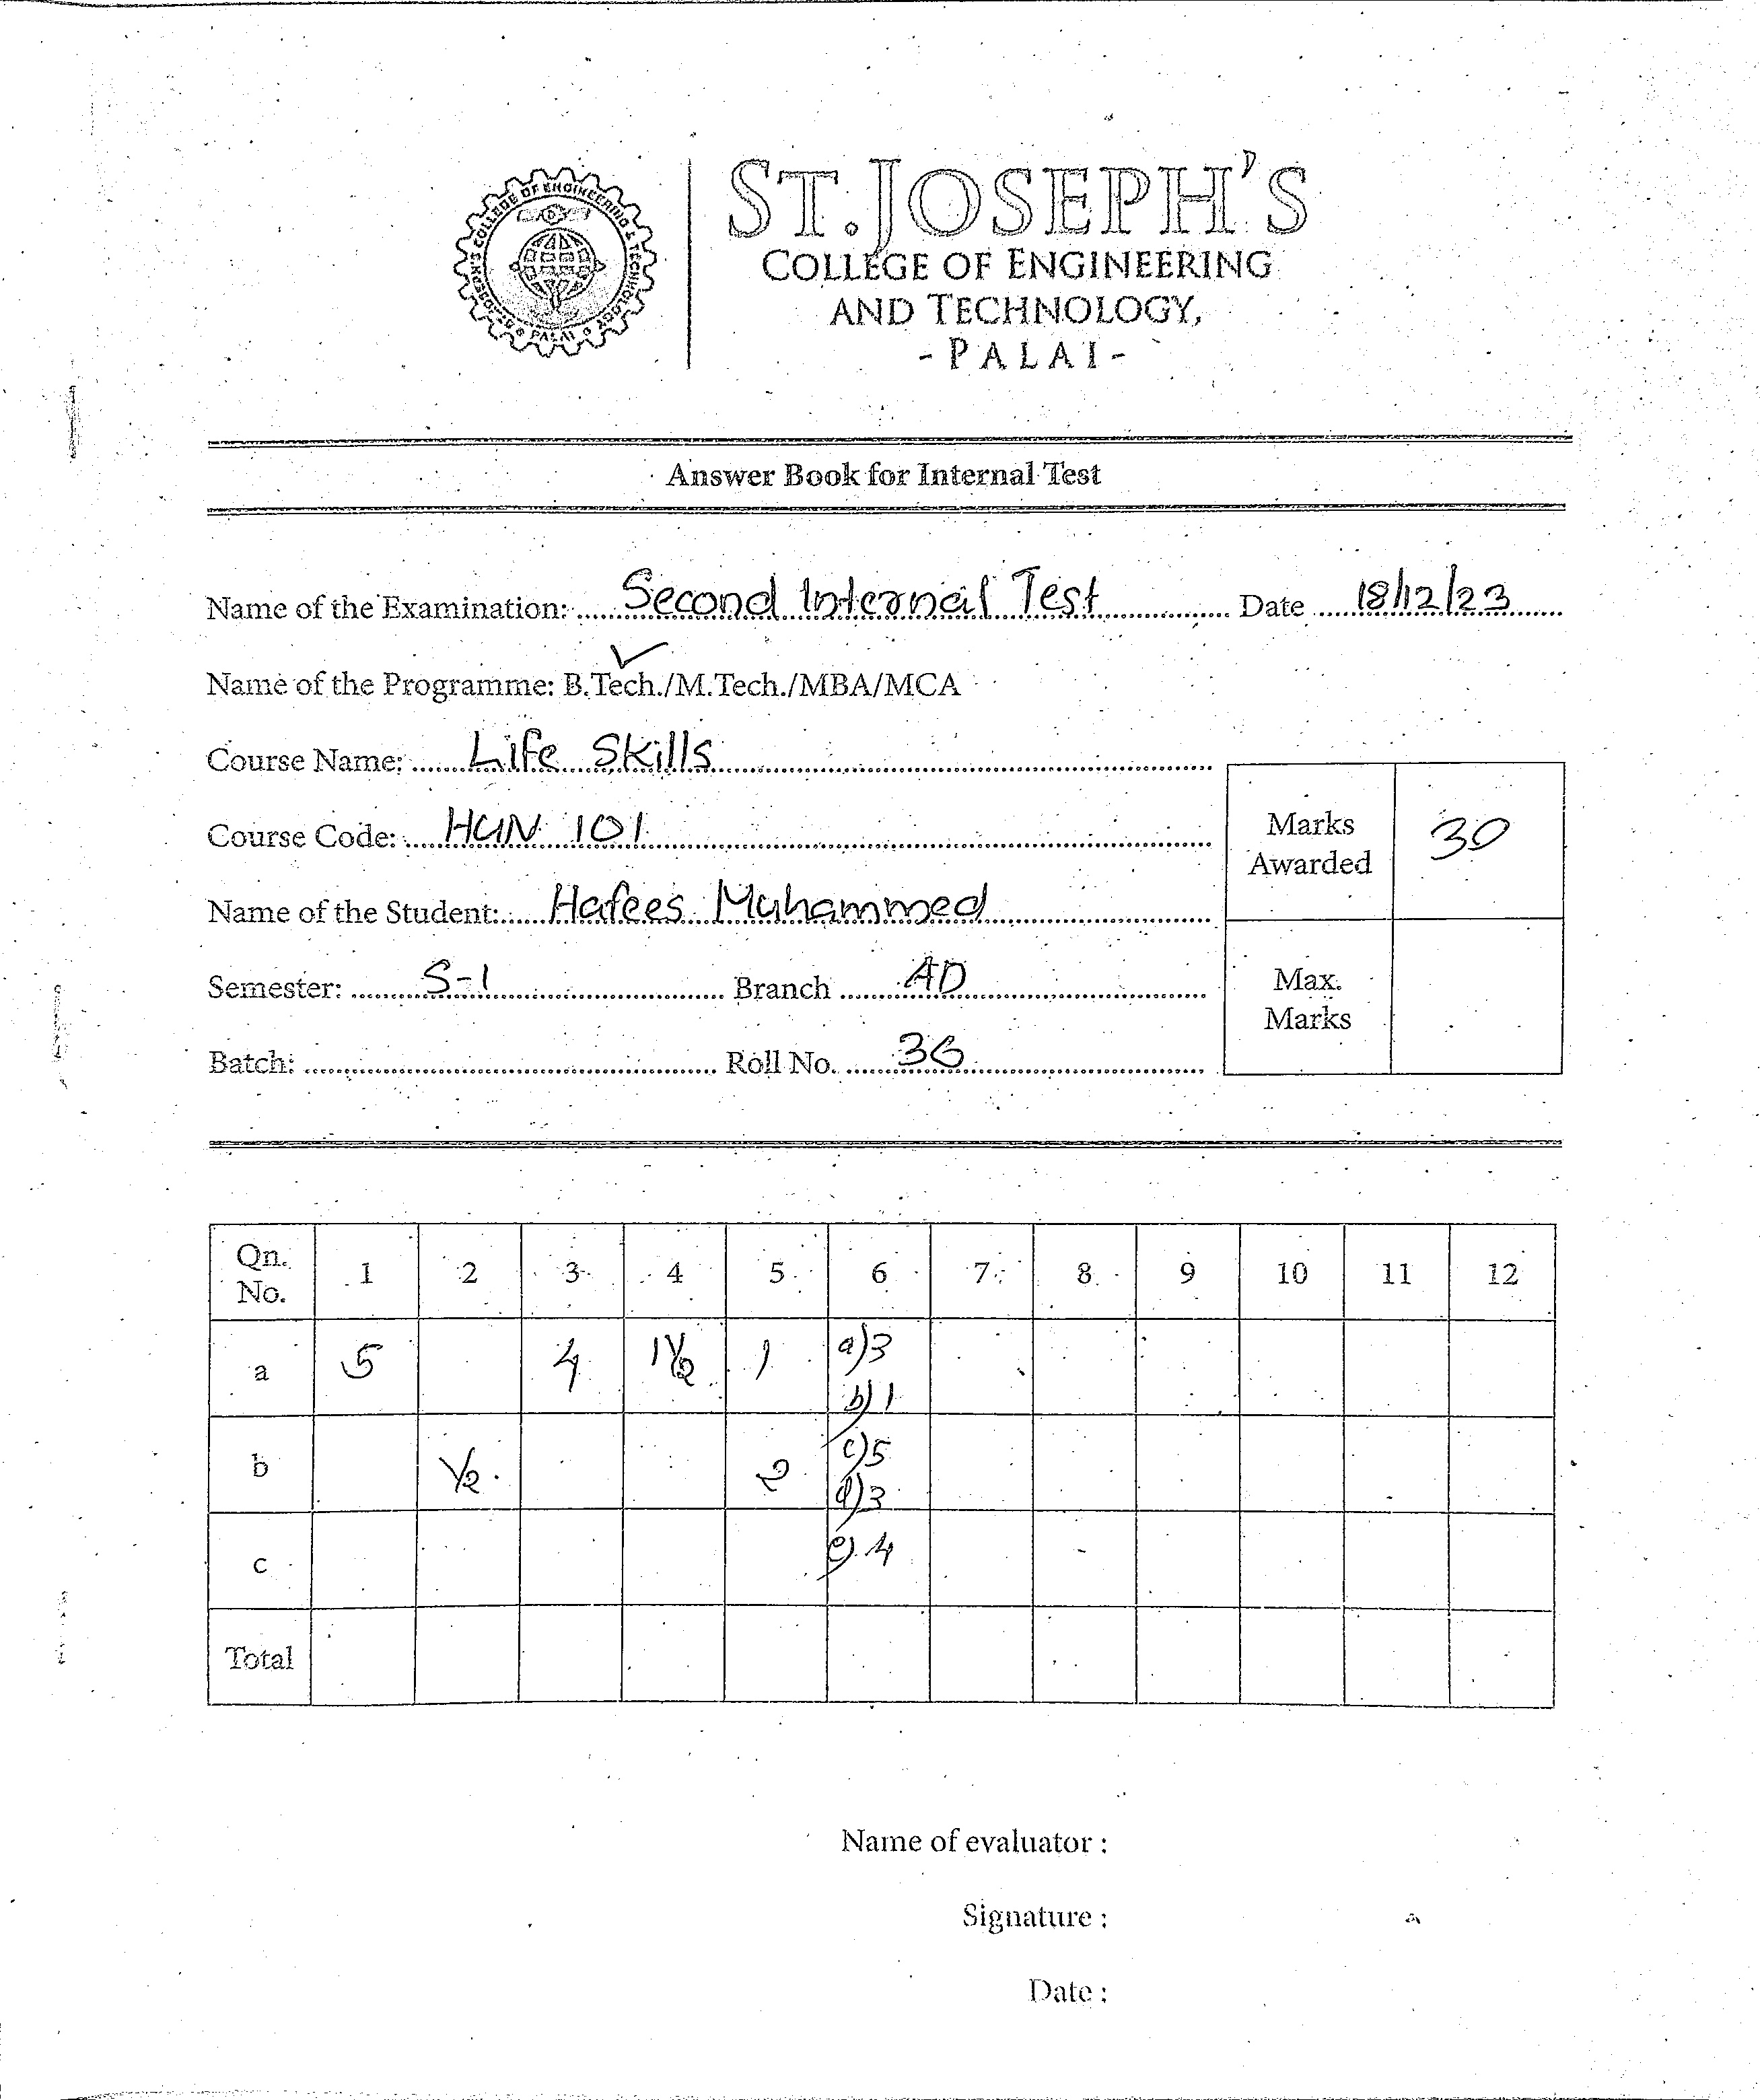 ST. JOSEPH'S
COLLEGE OF ENGINEERING
AND TECHNOLOGY,
- PALAI -
ST.JOSEPH'S COLLEGE OF ENGINEERING & TECHNOLOGY PALAI
Answer Book for Internal Test
Name of the Examination: Second Internal Test Date 18/12/23
Name of the Programme: B.Tech./M.Tech./MBA/MCA
Course Name: Life Skills
Course Code: HUN 101
Marks Awarded 30
Name of the Student: Hafees Muhammed
Semester: S-1 Branch AD
Max. Marks
Batch: Roll No. 36
Qn. No. 1 2 3 4 5 6 7 8 9 10 11 12
a 5 4 1½ 1 a)3 b)1
b ½ 2 c)5 d)3
c e) 4
Total
Name of evaluator :
Signature :
Date :